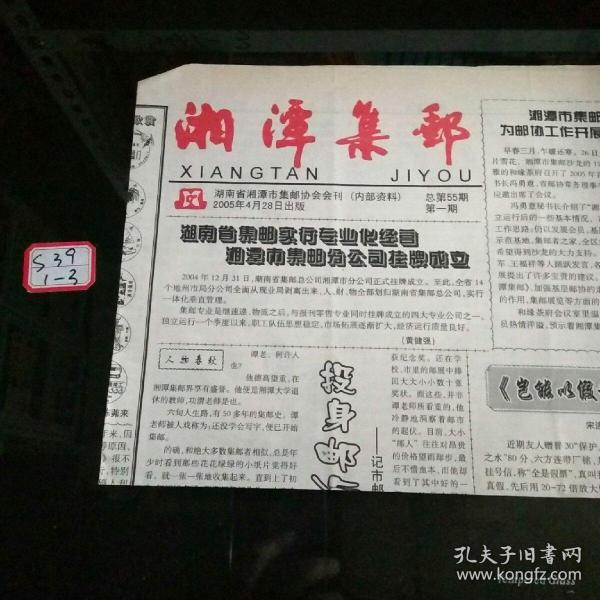 湘潭集邮
XIANGTAN JIYOU
湖南省湘潭市集邮协会会刊（内部资料）
2005年4月28日出版
总第55期
第一期
湖南省集邮实行专业化经营
湘潭市集邮分公司挂牌成立
2004年12月31日，湖南省集邮总公司湘潭市分公司正式挂牌成立。至此，全省14
个地州市局分公司全面从现业局剥离出来，人、财、物全部划归湖南省集邮总公司，实行
一体化垂直管理。
集邮专业是继速递、物流之后，与报刊零售专业同时挂牌成立的四大专业公司之一。
独立运行一个季度以来，职工队伍思想稳定，市场拓展逐渐扩大，经济运行质量良好。
（黄健强）
人物春秋
谭老，何许人
也？
他德高望重，在
湘潭集邮界享有盛誉。他便是湘潭大学退
休的教师，
六旬人生路，有50多年的集邮史。谭
老师被人戏称为：还没学会写字，便已开始
集邮。
的确，和绝大多数集邮者相似，总是年
少时看到那些花花绿绿的小纸片觉得好
看，就一张一张地收集起来。直到上了初
投身邮
——记市邮
获纪念奖。还在学
校、市里的邮展中捧
回大大小小数十张
奖状。面这些，并非
谭老师所看重的，他
冷静地洞察着邮市
的起伏。目前，大小
“邮人”往往对昂贵
的价格望而却步，最
后不惜血本，而他却
看到了其中好的一
湘潭市集邮
为邮协工作开展
早春三月，乍暖还寒。26日
片雪花，湘潭市集邮沙龙的1
雅的和缘茶府召开了2005年
书长冯勇意、市邮协常务理事
应邀出席了会议。
冯勇意秘书长介绍了“湘
立运行后的一些基本情况，
工作思路，仍以发展会员、基
示范基地、集邮者之家、全区
希望得到沙龙的大力支持。
军、王福祥等人踊跃发言，各
展提出了许多宝贵的建议，
潭集邮》，加强基层邮协的
的作用、集邮展览等方面的
和缘茶府会议室里温
员热情洋溢，预示着湘潭集
《岂能以假
近期友人赠普30“保护
之水”80分，六方连带厂铭，
挂号信，称“全是假票”，真叫
真假，先后用20-72倍放大
S39
1-3
孔夫子旧书网
www.kongfz.com
Tempered Glass